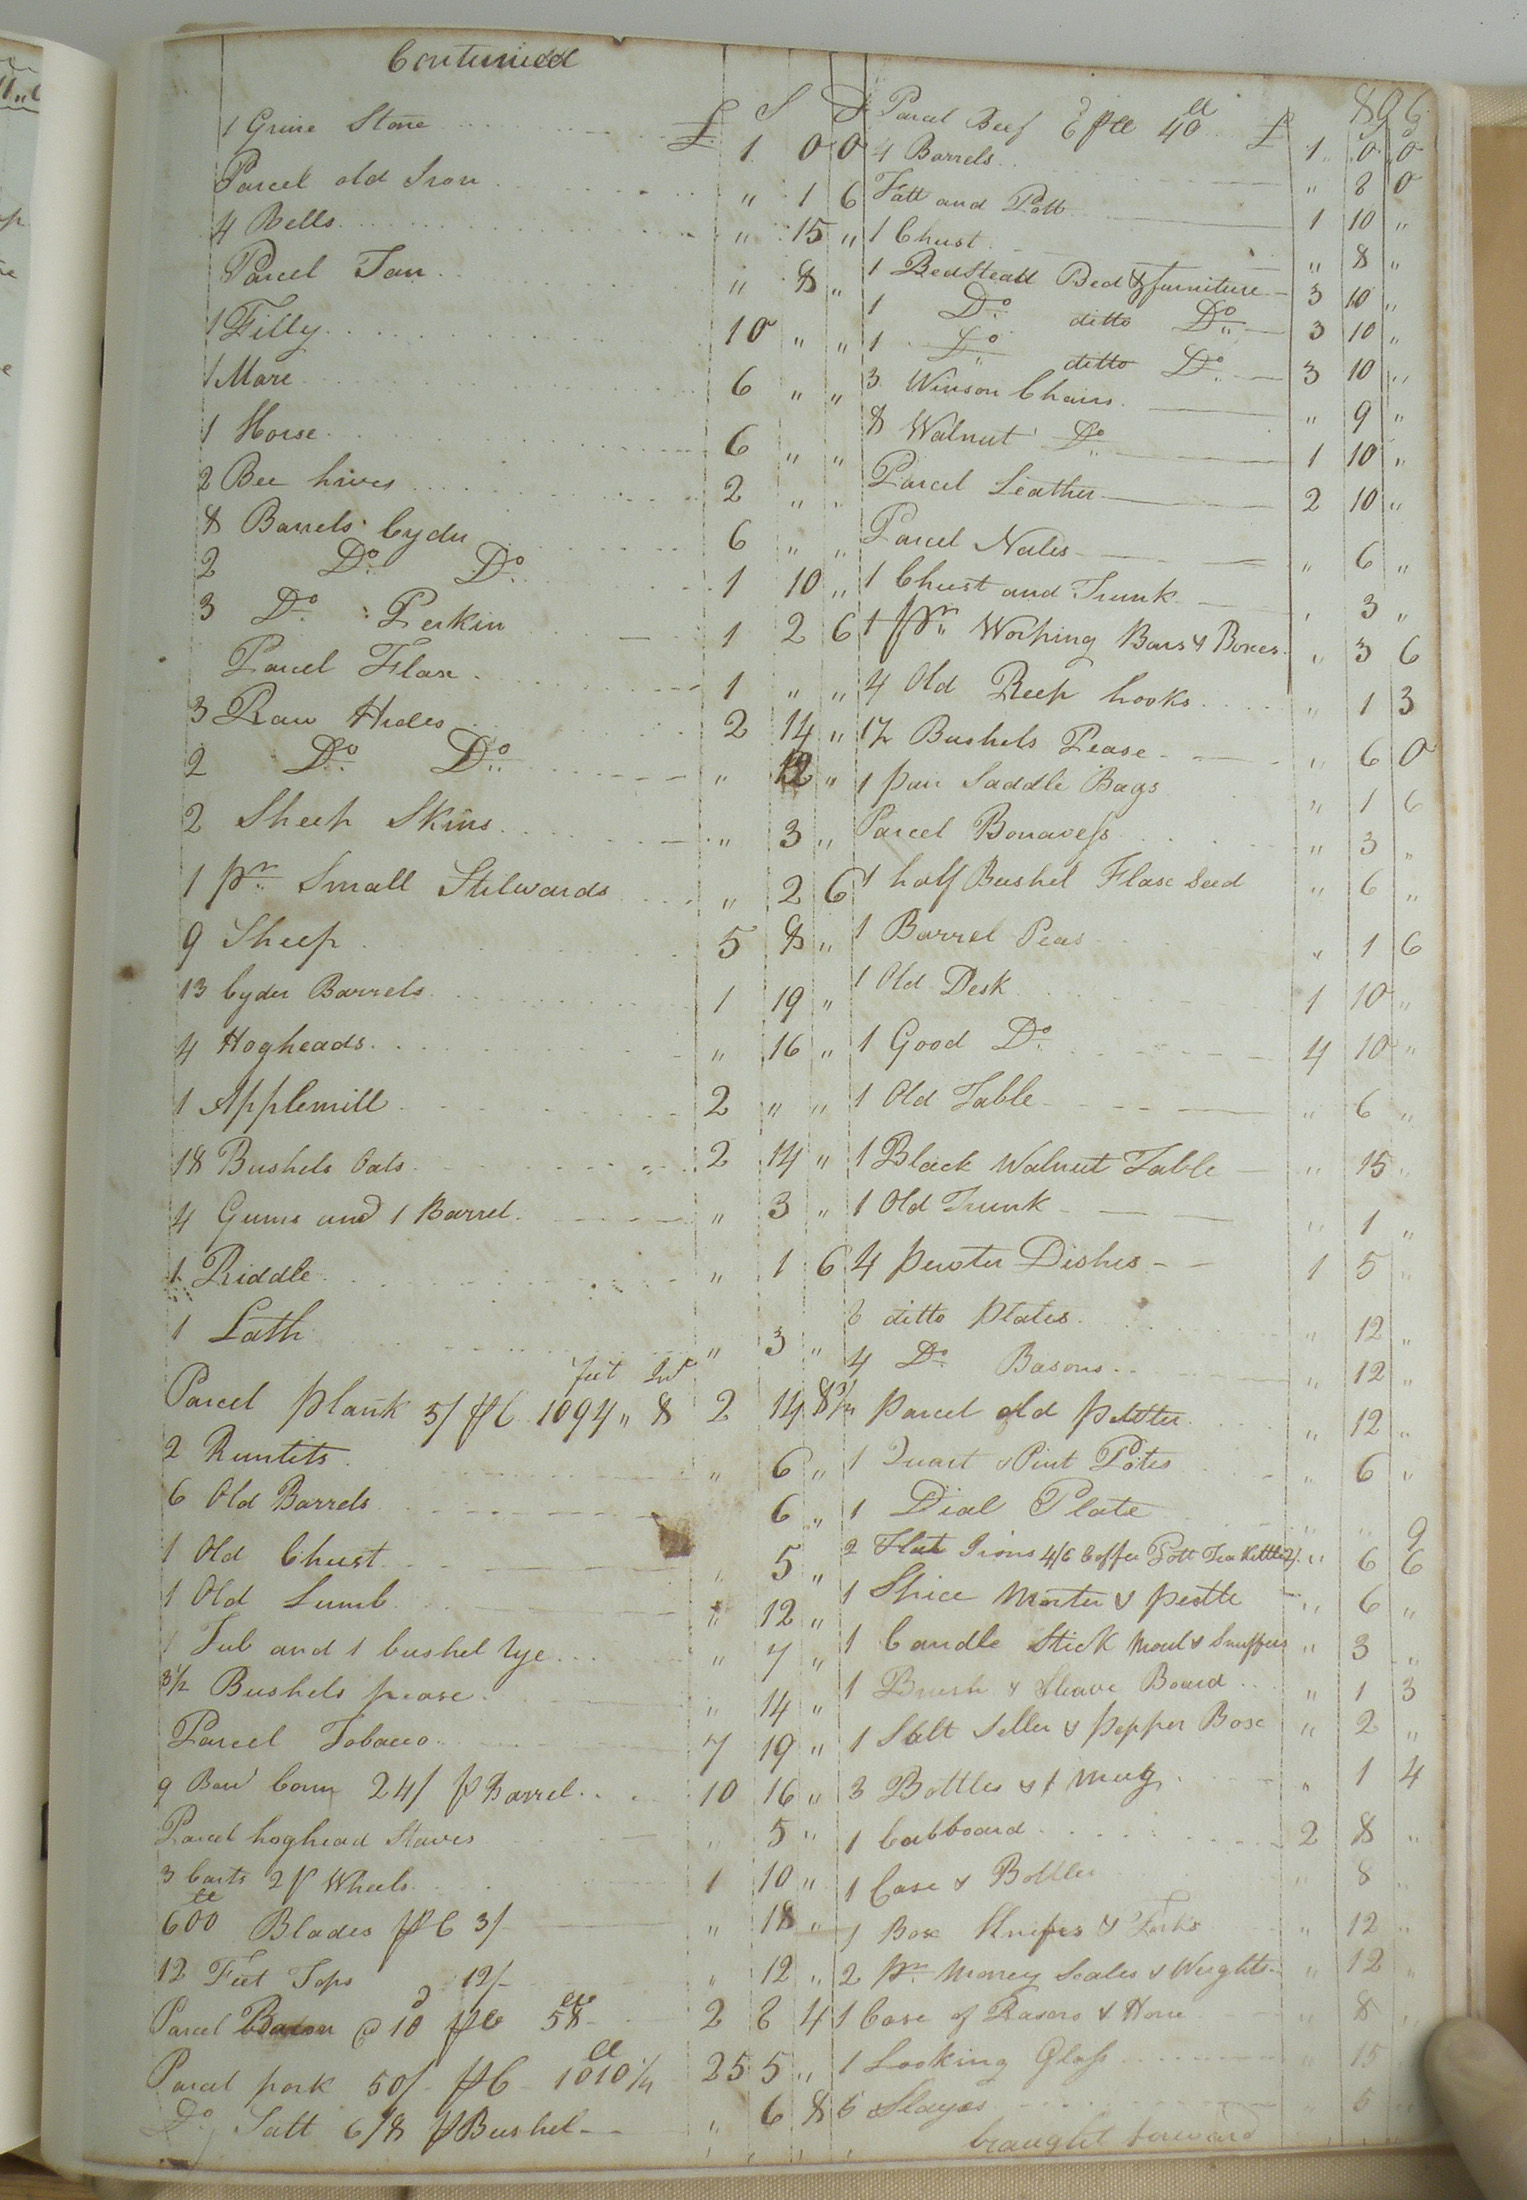 Continued
896
£ S D
1 Grine Stone £ 1 0 0
Parcel old Iron " 1 6
4 Bells " 15 "
Parcel Tan " 8 "
1 Filly 10 " "
1 Mare 6 " "
1 Horse 6 " "
2 Bee hives 2 " "
8 Barrels Cyder 6 " "
2 Do Do 1 10 "
3 Do Perkin 1 2 6
Parcel Flax 1 " "
3 Raw Hides 2 14 "
2 Do Do " 12 "
2 Sheep Skins " 3 "
1 pr Small Stilwards " 2 6
9 Sheep 5 8 "
13 Cyder Barrels 1 19 "
4 Hogheads " 16 "
1 Applemill 2 " "
18 Bushels Oats 2 14 "
4 Gums and 1 Barrel " 3 "
1 Riddle " 1 6
1 Lath " 3 "
feet In
Parcel plank 5/ P C 1094 " 8 2 14 8 1/2
2 Runtits " 6 "
6 Old Barrels 6 "
1 Old Chest " 5 "
1 Old Lumb " 12 "
1 Tub and 1 bushel rye " 7 "
3 1/2 Bushels pease " 14 "
Parcel Tobacco 7 19 "
9 Barl Corn 24/ P Barrel 10 16 "
Parcel hoghead Staves " 5 "
3 Carts 2 pr Wheels 1 10 "
600 Blades P C 3/ " 18 "
12 Feet Tops 12/ " 12 "
Parcel Bacon @ 10d P lb 58 2 8 4
Parcel pork 50/ P C 1010 1/4 25 5 "
Do Salt 6/8 P Bushel " 6 8
Parcel Beef 6d P lb 40 £ 1 0 0
4 Barrels " 8 0
Fatt and Pott 1 10 "
1 Chest " 8 "
1 BedStead Bed & furniture 3 10 "
1 Do ditto Do 3 10 "
1 Do ditto Do 3 10 "
3 Winson Chairs " 9 "
8 Walnut Do 1 10 "
Parcel Leather 2 10 "
Parcel Nales " 6 "
1 Chest and Trunk " 3 "
1 pr Worping Bars & Boxes " 3 6
4 Old Reep hooks " 1 3
1 1/2 Bushels Pease " 6 0
1 pair Saddle Bags " 1 6
Parcel Bonavess " 3 "
1 half Bushel Flax Seed " 6 "
1 Barrel Peas " 1 6
1 Old Desk 1 10 "
1 Good Do 4 10 "
1 Old Table " 6 "
1 Black Walnut Table " 15 "
1 Old Trunk " 1 "
4 pewter Dishes 1 5 "
6 ditto plates " 12 "
4 Do Basons " 12 "
parcel old pewter " 12 "
1 Quart & Pint Potes " 6 "
1 Dial Plate " " 9
2 Flat Irons 4/6 Coffee Pott Tea Kettle 2/ " 6 6
1 Spice Morter & pestle " 6 "
1 Candle Stick Moul & Snuffers " 3 "
1 Brush & Sleave Board " 1 3
1 Salt Seller & pepper Box " 2 "
3 Bottles & 1 Mug " 1 4
1 Cabboard 2 8 "
1 Case & Bottles " 8 "
1 Box Knifes & Forks " 12 "
2 pr Money Scales & Weights " 12 "
1 Case of Rasors & Hone " 8 "
1 Looking Glass " 15 "
6 Slayes " 5 "
braught forward